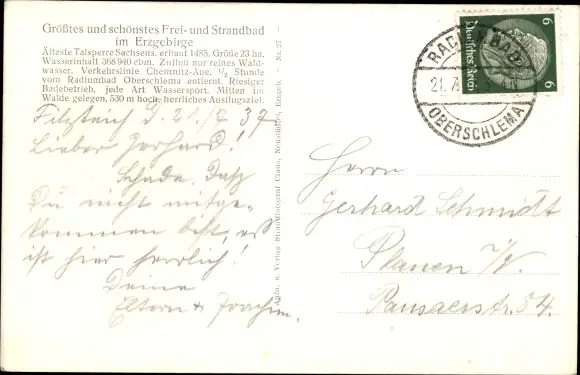 Größtes und schönstes Frei- und Strandbad
im Erzgebirge
Älteste Talsperre Sachsens, erbaut 1485. Größe 23 ha.
Wasserinhalt 368940 cbm. Zufluß nur reines Wald-
wasser. Verkehrslinie Chemnitz-Aue, ½ Stunde
vom Radiumbad Oberschlema entfernt. Riesiger
Badebetrieb, jede Art Wassersport. Mitten im
Walde gelegen, 530 m hoch, herrliches Ausflugsziel.
Filzteich d. 21/7 37
Lieber Gerhard!
Schade, daß
Du nicht mitge-
kommen bist, es
ist hier herrlich!
Deine
Eltern + Joachim.
Aufn. u. Verlag Strandfotograf Clauß, Neustädtel, Erzgeb. - Nr. 27
OBERSCHLEMA
21.7.
6 6
Deutsches Reich
Herrn
Gerhard Schmidt
Plauen i/V.
Pausaerstr. 54.